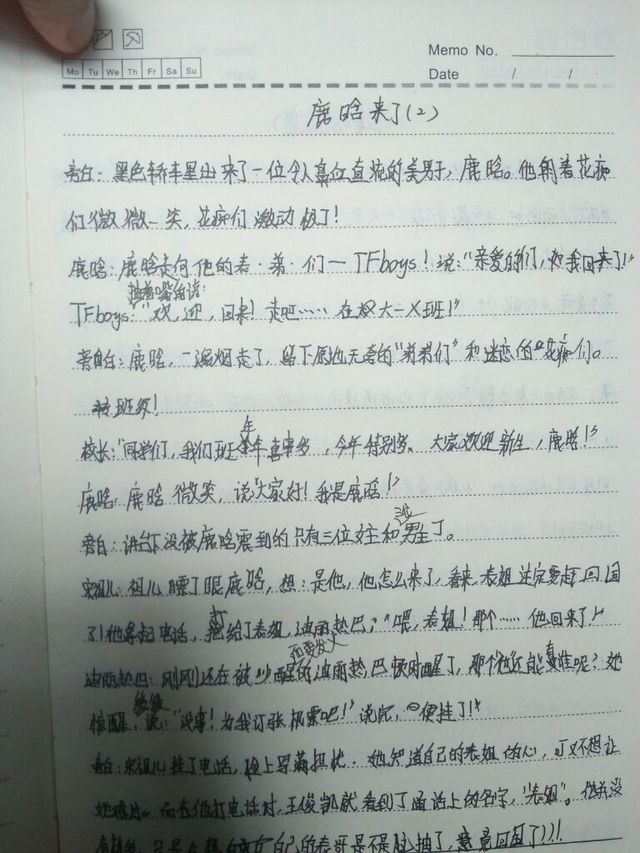 Memo No.
Mo Tu We Th Fr Sa Su
Date / /
鹿晗来了(2)
旁白：黑色轿车里出来了一位令人真位直晃的美男子，鹿晗。他朝着花痴
们微微一笑，花痴们激动极了！
鹿晗：鹿晗走向他的表·弟·们一TFboys！说："亲爱的们，我回来了！"
TFboys："欢，迎，回来！走吧……在权大一X班！"
旁白：鹿晗，一溜烟走了，留下原地无奈的"弟弟们"和迷恋的"花痴们。
班级！
年
校长："同学们，我们班年喜事多，今年特别多。大家欢迎新生，鹿晗！"
鹿晗：鹿晗微笑，说"大家好！我是鹿晗！"
旁白：讲台下没被鹿晗震到的只有三位女主和男主了。
宋祖儿：祖儿瞟了眼鹿晗，想：是他，他怎么来了，看来表姐注定要赶回国
了！他拿起电话，打给了表姐，迪丽热巴；"喂，表姐！那个……他回来了！"
迪丽热巴：刚刚还在被的迪丽热巴顿时醒了，那个他还能是谁呢？她
惊醒，说："没事！为我订张机票吧！"说完，便挂了！
旁白：宋祖儿挂了电话，脸上写满担忧。她知道自己的表姐的心，可又不想让
她难过。而在他打电话时，王俊凯就看到了通话上的名字，"表姐"。他并没
自己的表哥是不是脑抽了，竟回国了！！！